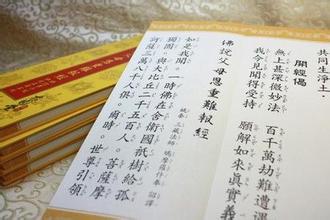 共同生淨土
開經偈
無上甚深微妙法 百千萬劫難遭遇
我今見聞得受持 願解如來真實義
佛說父母恩重難報經
姚秦三藏法師 鳩摩羅什奉 詔譯
如是我聞。一時佛在舍衛國祇樹給孤
獨園。與大比丘二千五百人。菩薩摩
訶薩三萬八千人俱。爾時。世尊引領